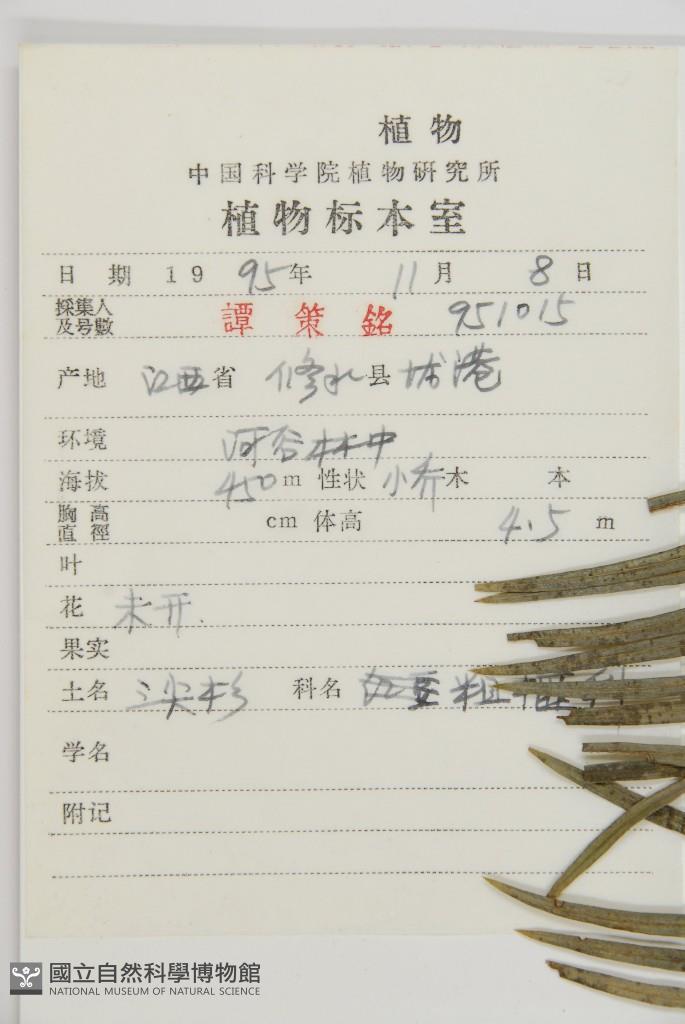 植物
中国科学院植物研究所
植物标本室
日期 19 95年 11月 8日
採集人及号數 譚策銘 951015
产地 江西省 修水县 城港
环境 河谷林中
海拔 450m 性状 小乔木 本
胸高直徑 cm 体高 4.5 m
叶
花 未开.
果实
土名 三尖杉 科名
学名
附记
國立自然科學博物館
NATIONAL MUSEUM OF NATURAL SCIENCE